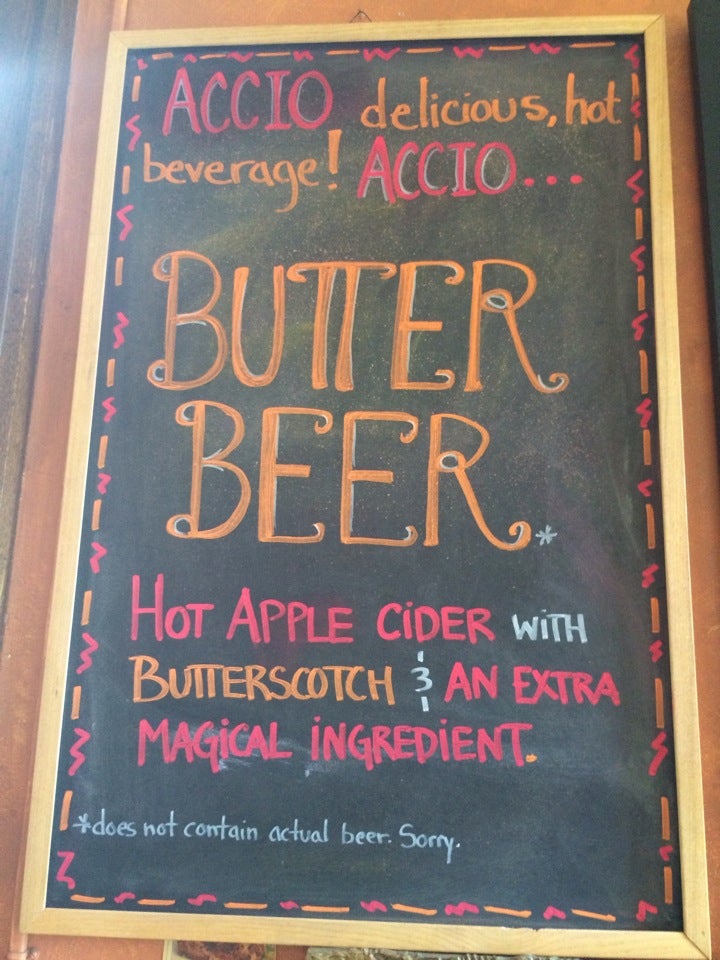 ACCIO delicious, hot
beverage! ACCIO...
BUTTER
BEER*
HOT APPLE CiDER WiTH
BUTTERSCOTCH & AN EXTRA
MAGiCAL iNGREDiENT.
*does not contain actual beer. Sorry.